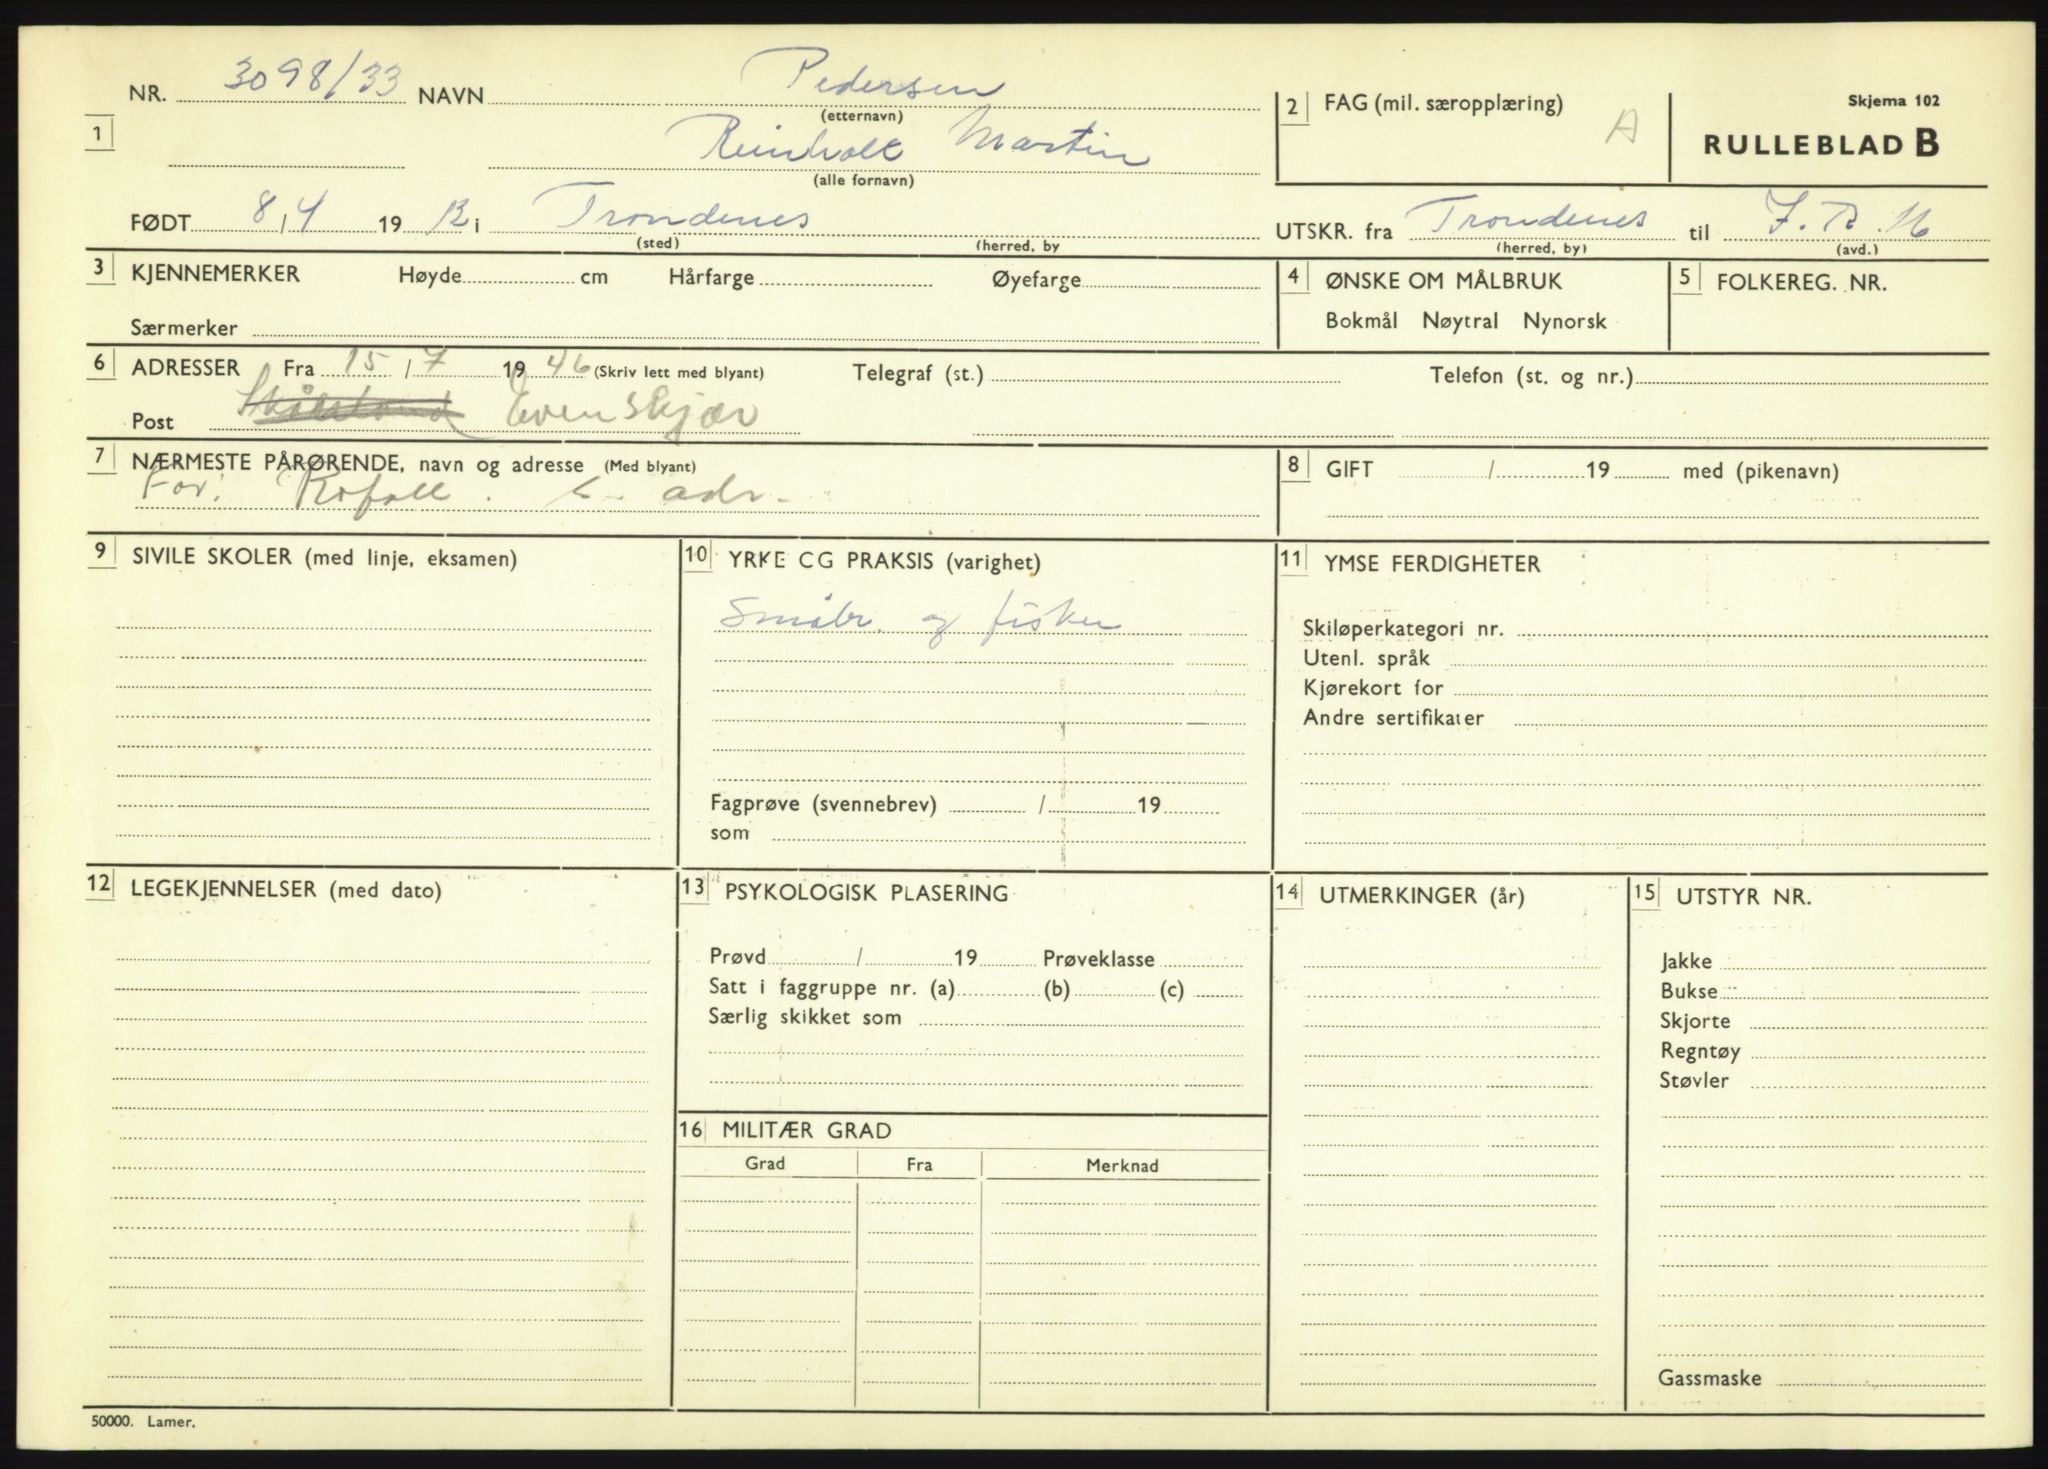 NR. 3098/33 NAVN Pedersen
(etternavn)
1
Reinholt Martin
(alle fornavn)
2 FAG (mil. særopplæring) A
Skjema 102
RULLEBLAD B
FØDT 8/4 19 12 i Trondenes
(sted) (herred, by
UTSKR. fra Trondenes til I.R.16
(herred, by) (avd.)
3 KJENNEMERKER Høyde cm Hårfarge Øyefarge
Særmerker
4 ØNSKE OM MÅLBRUK
Bokmål Nøytral Nynorsk
5 FOLKEREG. NR.
6 ADRESSER Fra 15/7 19 46 (Skriv lett med blyant) Telegraf (st.) Telefon (st. og nr.)
Post Evenskjær
7 NÆRMESTE PÅRØRENDE, navn og adresse (Med blyant)
Far: Rofall. s. adr.
8 GIFT / 19 med (pikenavn)
9 SIVILE SKOLER (med linje, eksamen)
10 YRKE CG PRAKSIS (varighet)
Småbr. og fisker
Fagprøve (svennebrev) / 19
som
11 YMSE FERDIGHETER
Skiløperkategori nr.
Utenl. språk
Kjørekort for
Andre sertifikater
12 LEGEKJENNELSER (med dato)
13 PSYKOLOGISK PLASERING
Prøvd / 19 Prøveklasse
Satt i faggruppe nr. (a) (b) (c)
Særlig skikket som
14 UTMERKINGER (år)
15 UTSTYR NR.
Jakke
Bukse
Skjorte
Regntøy
Støvler
Gassmaske
16 MILITÆR GRAD
Grad Fra Merknad
50000. Lamer.